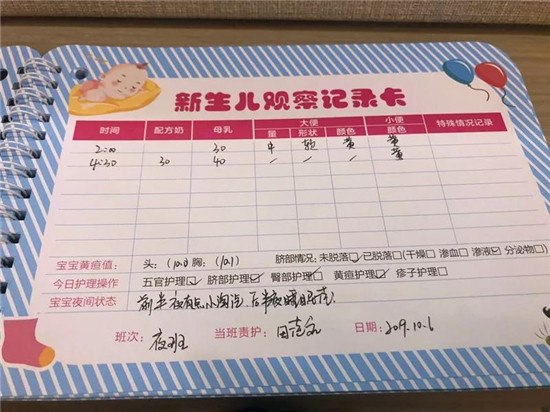 新生儿观察记录卡
时间 配方奶 母乳 大便 小便 特殊情况记录
量 形状 颜色 颜色
2:00 30 中 黄 黄
4:30 30 40 / / / 黄
宝宝黄疸值: 头: 胸: 脐部情况: 未脱落☑ 已脱落□ (干燥□ 渗血□ 渗液☑ 分泌物□)
今日护理操作 五官护理☑ 脐部护理☑ 臀部护理☑ 黄疸护理☑ 疹子护理□
宝宝夜间状态 前半夜有点小淘汽, 后半夜睡眠
班次: 夜班 当班责护: 日期: 2019.10.6